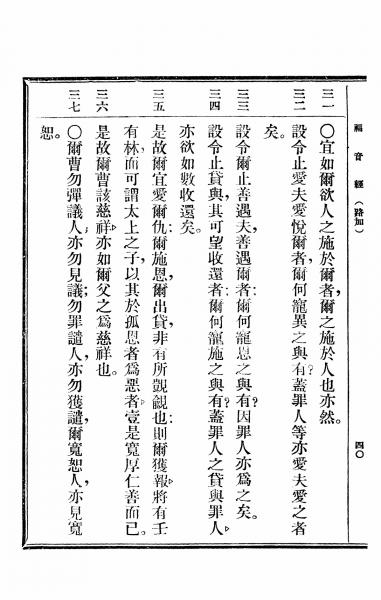 福音經（路加）
四〇
三一
〇宜如爾欲人之施於爾者，爾之施於人也亦然。
三二
設令止愛夫愛悅爾者，爾何寵異之與有？蓋罪人等亦愛夫愛之者
矣。
三三
設令爾止善遇夫，善遇爾者：爾何寵恩之與有？因罪人亦爲之矣。
三四
設令止貸與，其可望收還者：爾何寵施之與有？蓋罪人之貸與罪人，
亦欲如數收還矣。
三五
是故爾宜愛爾仇，爾施恩，爾出貸，非有所覬覦也：則爾獲報，將有壬
有林，而可謂太上之子，以其於孤恩者爲惡者，壹是寬厚仁善而已。
三六
是故爾曹該慈祥，亦如爾父之爲慈祥也。
三七
〇爾曹勿彈議人，亦勿見議；勿罪譴人，亦勿獲譴，爾寬恕人，亦見寬
恕。